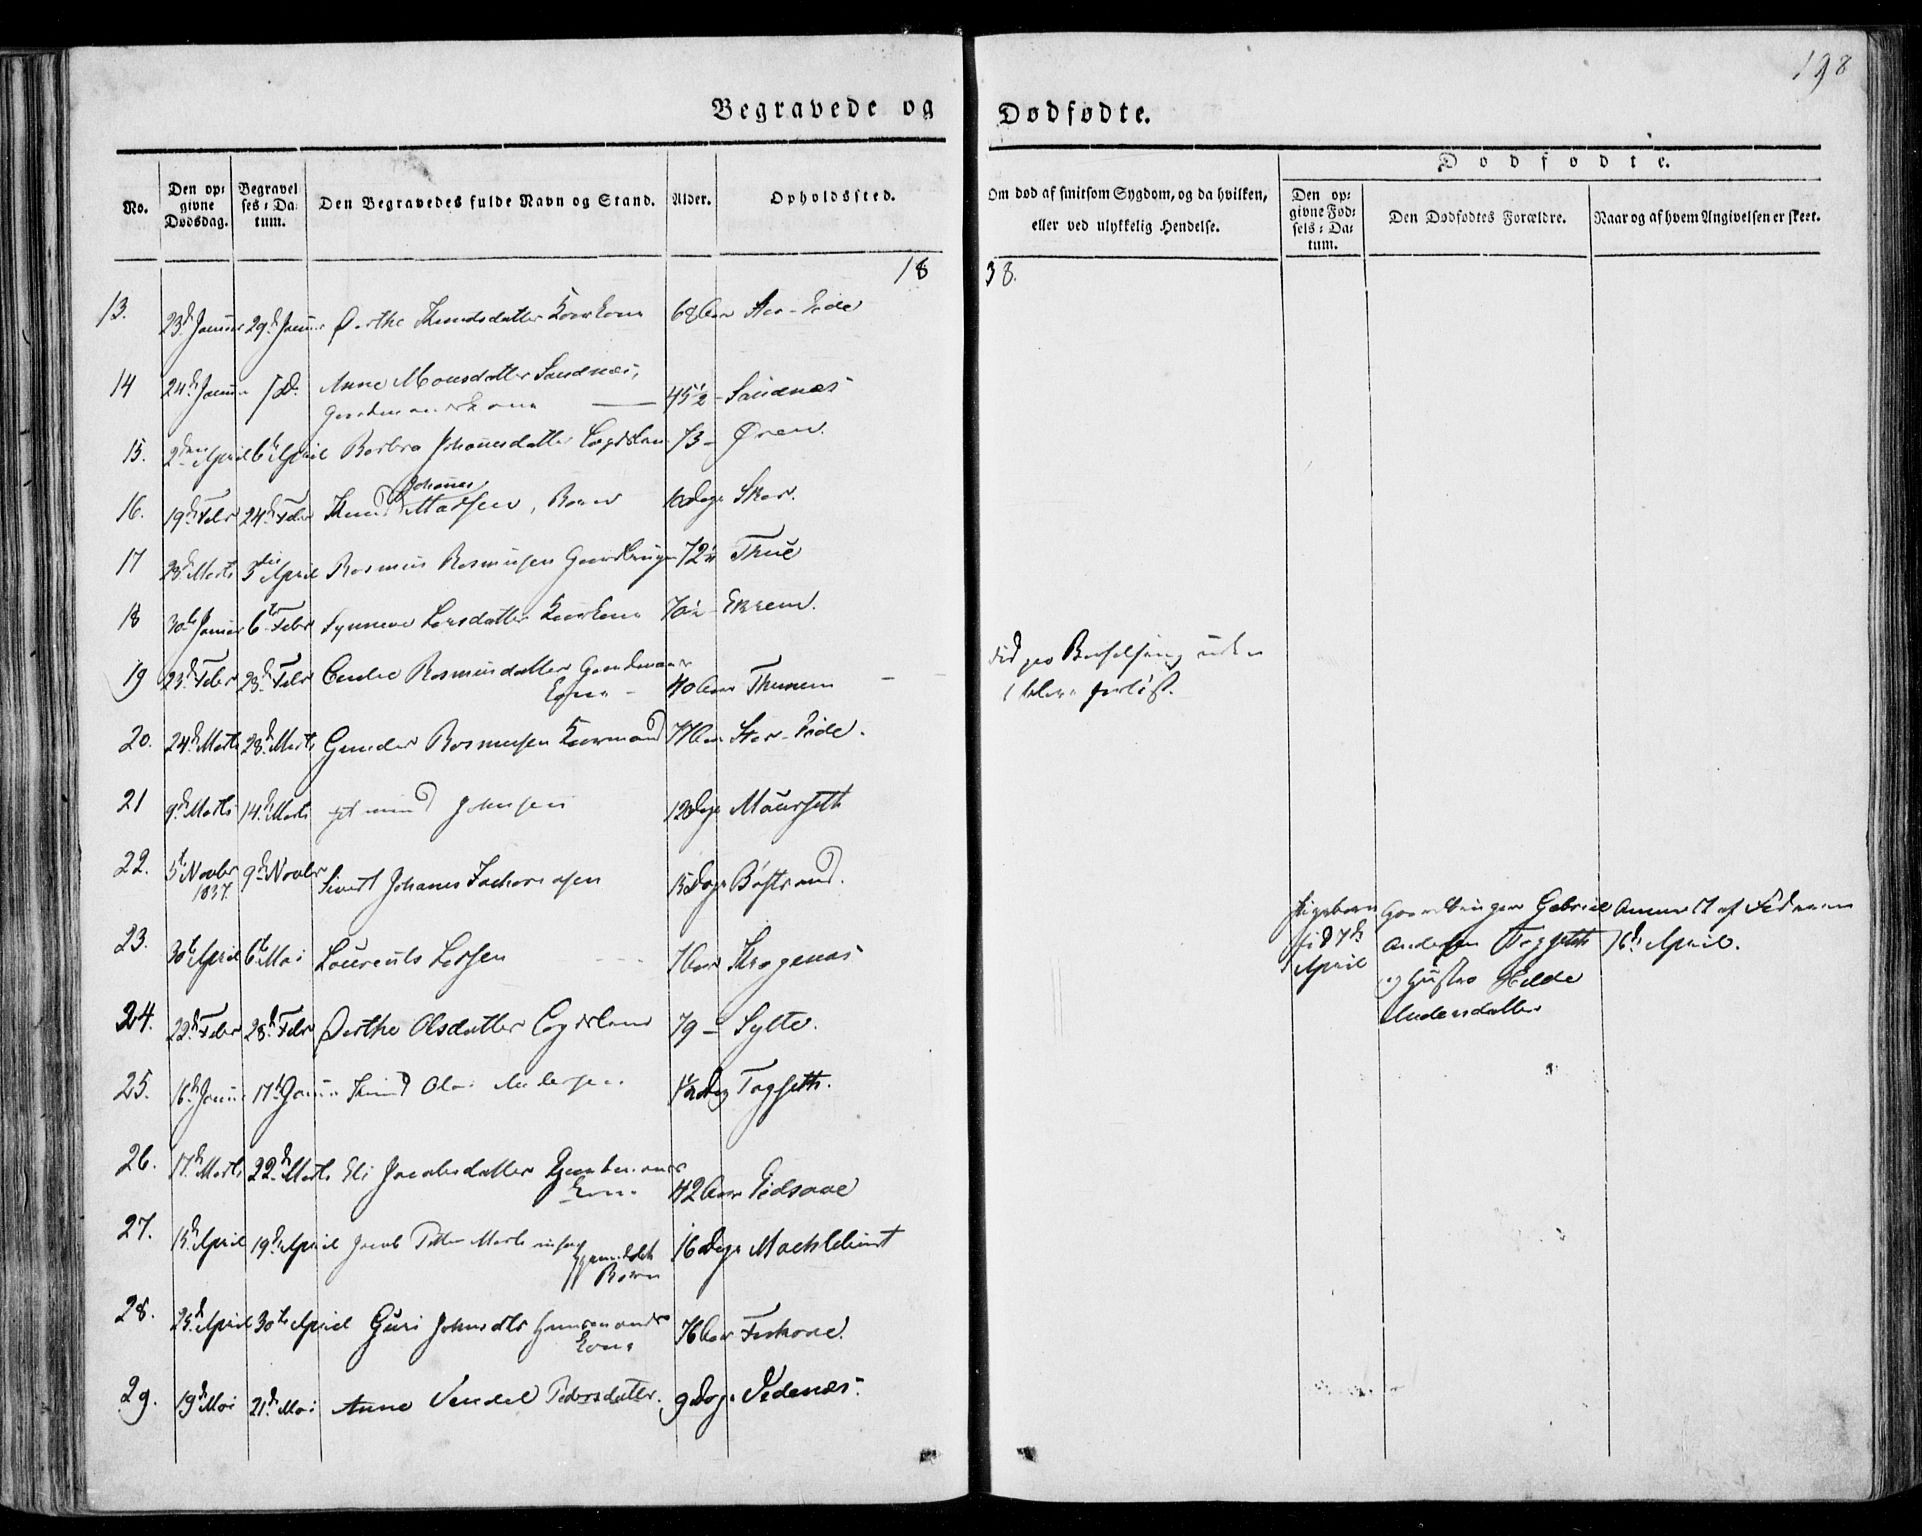 198
Begravede og Dødfødte.
No.
Den op:
givne
Dødsdag.
Begravel
ses: Da:
tum.
Den Begravedes fulde Navn og Stand.
Alder.
Opholdssted.
Om død af smitsom Sygdom, og da hvilken,
eller ved ulykkelig Hendelse.
Dødfødte.
Den op:
givne Fød:
sels: Da:
tum.
Den Dødfødtes Forældre.
Naar og af hvem Angivelsen er skeet.
1838.
13. 23d Januar 29d Januar Birthe Knudsdatter Kaarkone 68 Aar Stor-Eide
14 24d Januar Anne Monsdatter Sandnæs,
Gaardmandskone 45 1/2 - Sandnæs
15. 2den April 6te April Barbra Johannesdatter 73 - Øren.
Johannes
16. 19d Febr 24d Febr Knud Madsen, Barn 10 Dage Skar.
17 23d Marts 3die April Rasmus Rasmusen Gaardbruger 72 1/2 Thue
18 30te Januar 6te Febr Synneve Larsdatter Kaarkone 70 1/2 - Ekrem.
19 23d Febr 28d Febr Rasmusdatter Gaardmands
Kone - 40 Aar Thunem
død paa Barselseng uden
at blive forløst.
20. 24d Marts 28d Marts Gunder Rasmusen Kaarmand 77 Aar Stor-Eide.
21 9d Marts 14d Marts Johnsen 12 Dage Maursett
22. 5te Novbr 9d Novbr Sivert Johannes Zachariasen 15 Dage Bøstrand.
1837.
23. 30te April 6te Mai Laurents Larsen 7 Aar Krogenæs
Gaardbruger Gabriel
Andersen Tagseth
og Hustro Hilde
Andersdatter
7d
April
Anmeldt af Faderen
16d April.
24. 22d Febr 28d Febr Birthe Olsdatter 79 - Sylte.
25. 16d Januar 17d Januar Knud Olai Andersen 1/2 Dag Tagseth.
26. 17d Marts 22d Marts Eli Jacobsdatter
Kone 42 Aar Eidsaae
27. 15d April 19d April Jacob Petter
Barn 16 Dage
28. 25d April 30te April Guri Johnsdtr Huusmands
Kone 76 Aar Farkaae.
29. 19d Mai 21d Mai Anne Vendel Pedersdatter. 9 Dage Vedenæs.